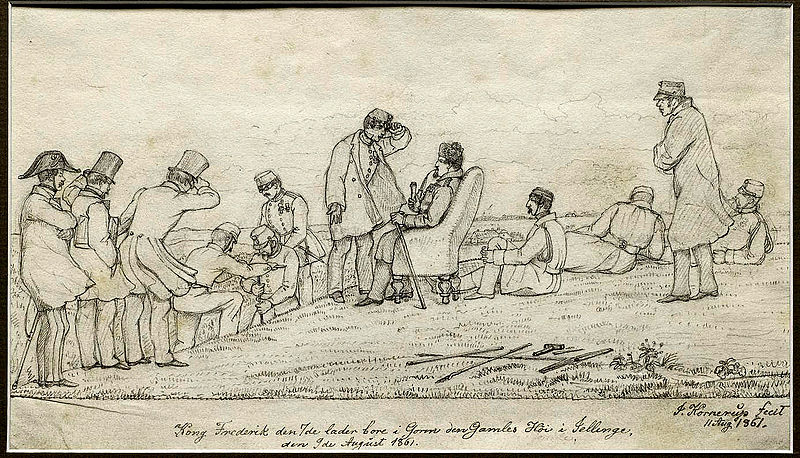 Kong Frederik den 7de lader bore i Gorm den Gamles Höi i Jellinge,
den 9de August 1861.
J. Kornerup fecit
11 Aug. 1861.